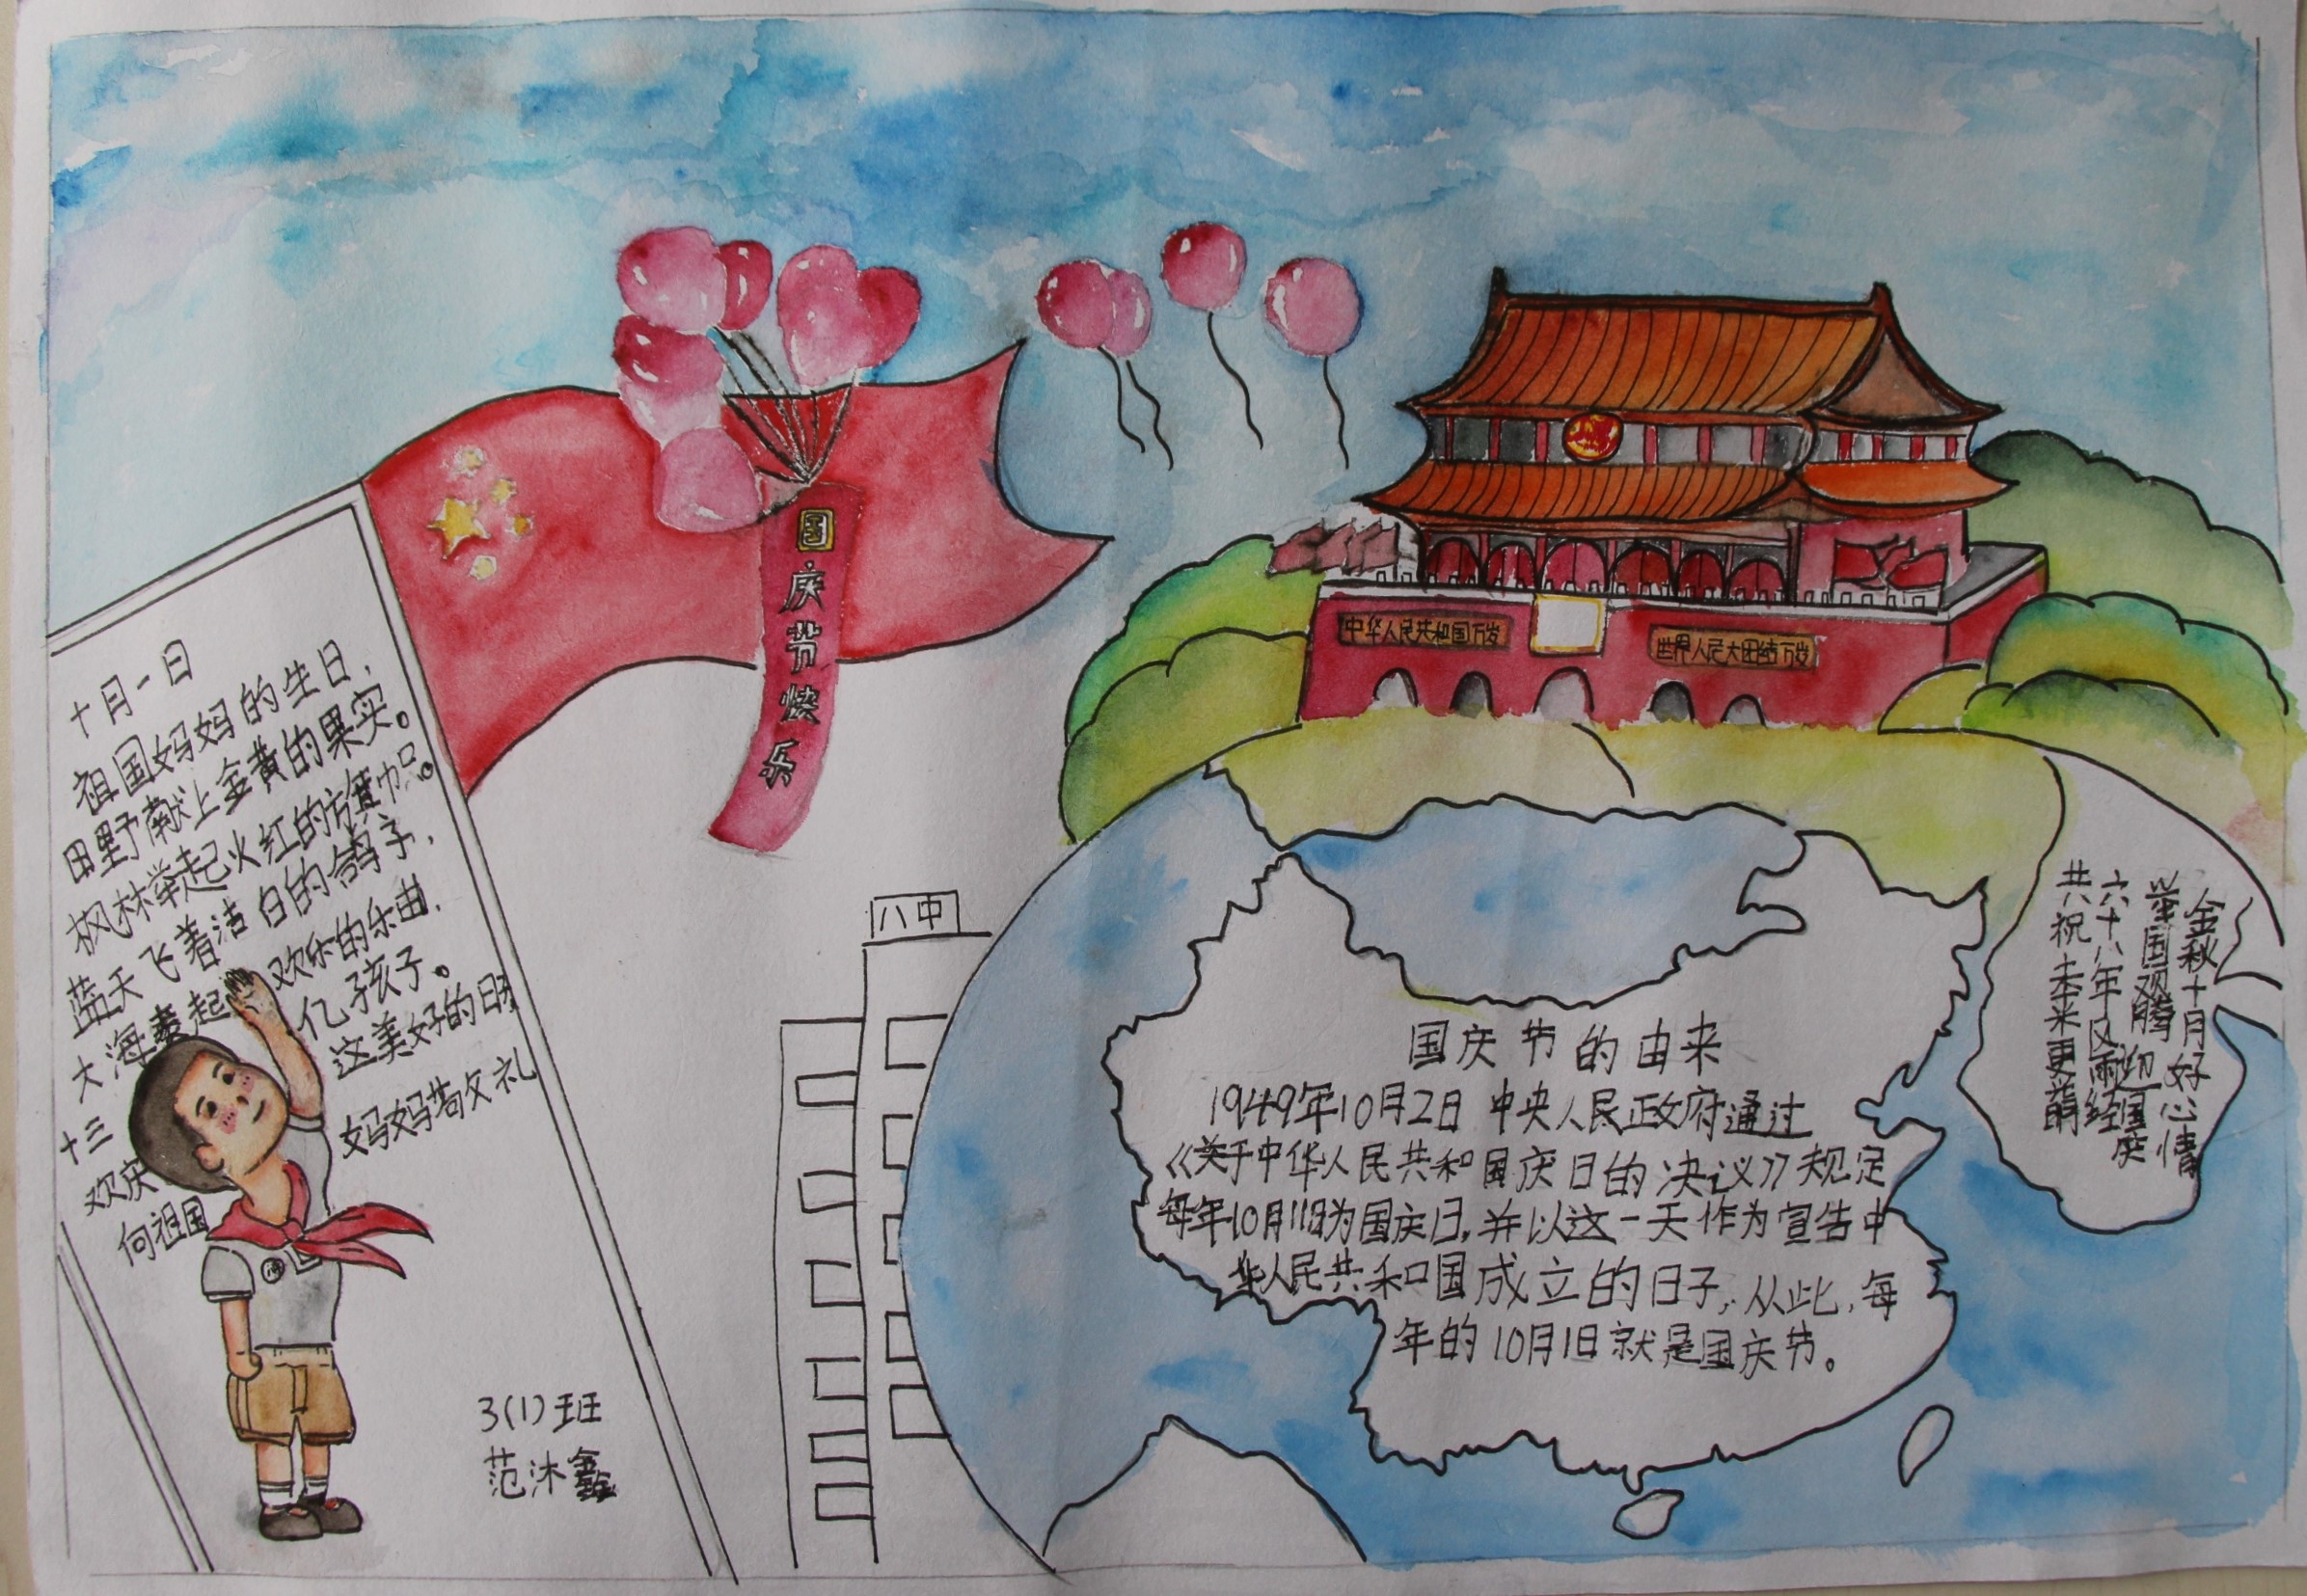 国庆节快乐
中华人民共和国万岁
世界人民大团结万岁
十月一日
祖国妈妈的生日，
田野献上金黄的果实。
枫林举起火红的旗帜。
蓝天飞着洁白的鸽子，
大海奏起欢乐的乐曲，
十三亿孩子。
欢庆这美好的日
向祖国妈妈
礼
3(1)班
范沐鑫
八中
国庆节的由来
1949年10月2日中央人民政府通过
《关于中华人民共和国国庆日的决议》规定
每年10月1日为国庆日，并以这一天作为宣告中
华人民共和国成立的日子，从此，每
年的10月1日就是国庆节。
金秋十月好心情
举国欢腾迎国庆
六十八年风雨经
共祝未来更